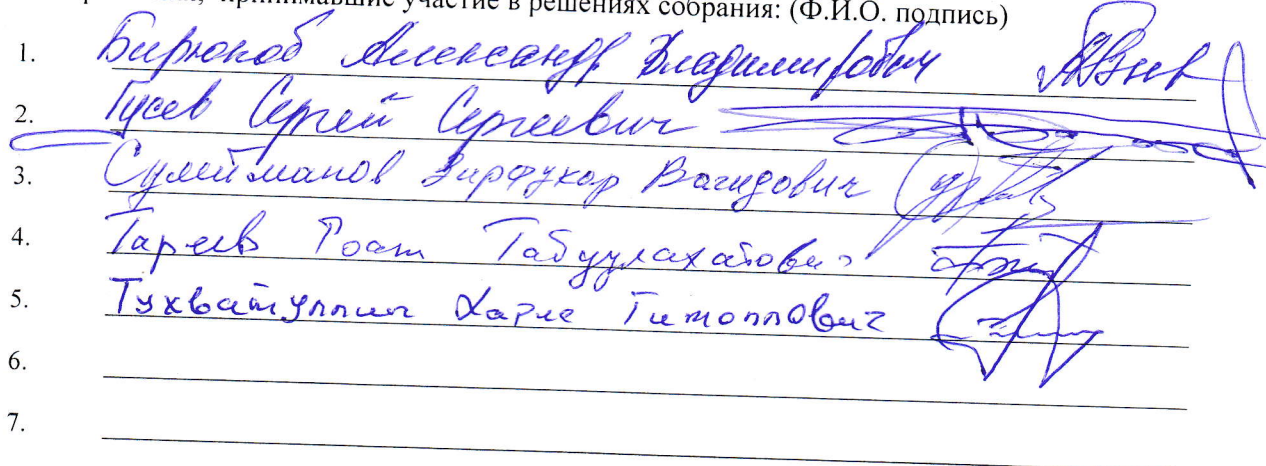 принимавшие участие в решениях собрания: (Ф.И.О. подпись)
1. Бирюков Александр Владимирович
2. Гусев Сергей Сергеевич
3. Сулейманов Зирфукор Вагидович
4. Гареев Роат
5. Тухватуллин Харис
6.
7.